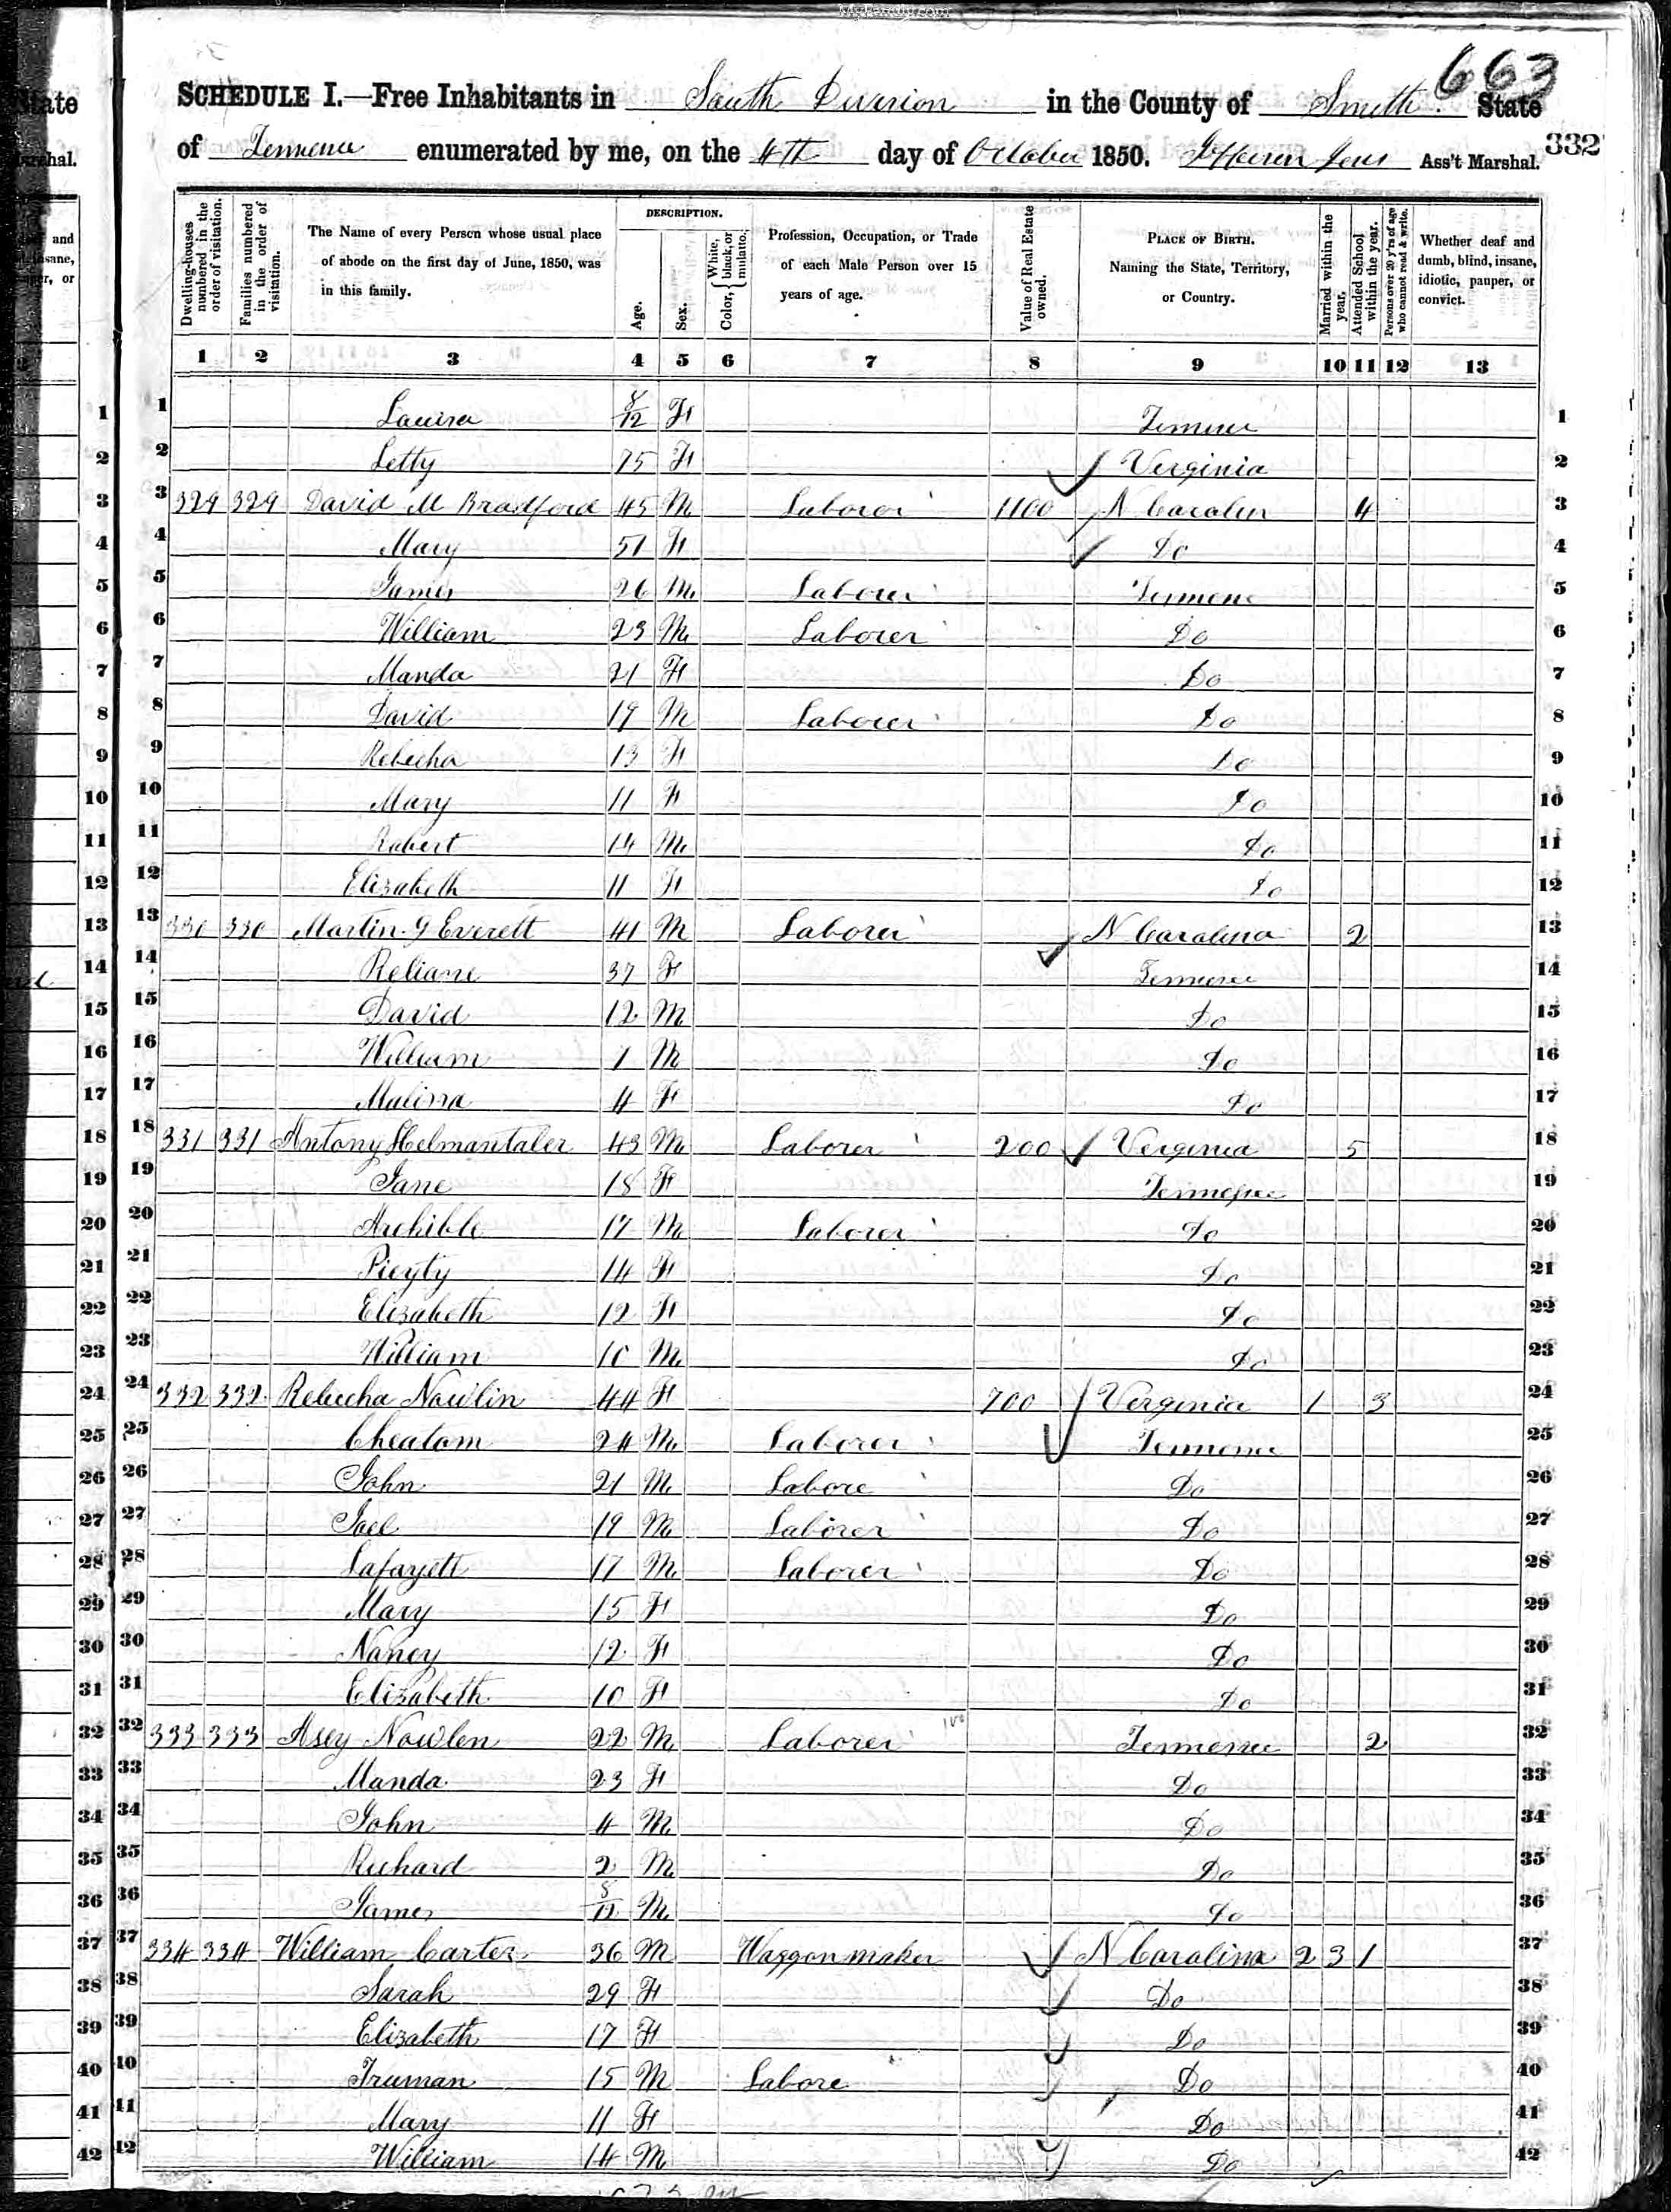 MyFamily.com
663
SCHEDULE I.—Free Inhabitants in South Division in the County of Smith State
of Tennessee enumerated by me, on the 4th day of October 1850. Ass't Marshal.
332
Dwelling-houses numbered in the order of visitation.
Families numbered in the order of visitation.
The Name of every Person whose usual place of abode on the first day of June, 1850, was in this family.
DESCRIPTION.
Age.
Sex.
Color, { White, black, or mulatto.
Profession, Occupation, or Trade of each Male Person over 15 years of age.
Value of Real Estate owned.
PLACE OF BIRTH. Naming the State, Territory, or Country.
Married within the year.
Attended School within the year.
Persons over 20 y'rs of age who cannot read & write.
Whether deaf and dumb, blind, insane, idiotic, pauper, or convict.
1 2 3 4 5 6 7 8 9 10 11 12 13
1 Laura /12 F Tennessee 1
2 Letty 75 F Virginia 2
3 329 329 David M Bradford 45 M Laborer 1100 N Carolin 4 3
4 Mary 51 F Do 4
5 James 26 M Laborer Tennessee 5
6 William 23 M Laborer Do 6
7 Manda 21 F Do 7
8 David 19 M Laborer Do 8
9 Rebecha 13 F Do 9
10 Mary 11 F Do 10
11 Robert 14 M Do 11
12 Elizabeth 11 F Do 12
13 330 330 Martin G Everett 41 M Laborer N Carolina 2 13
14 Reliane 37 F Tennessee 14
15 David 12 M Do 15
16 William 1 M Do 16
17 Malissa 4 F Do 17
18 331 331 Antony Helmantaler 43 M Laborer 200 Virginia 5 18
19 Jane 18 F Tennessee 19
20 Archible 17 M Laborer Do 20
21 Pieyty 14 F Do 21
22 Elizabeth 12 F Do 22
23 William 10 M Do 23
24 332 332 Rebecha Nowlin 44 F 700 Virginia 1 3 24
25 Cheatam 24 M Laborer Tennessee 25
26 John 21 M Labore Do 26
27 Joel 19 M Laborer Do 27
28 Lafayett 17 M Laborer Do 28
29 Mary 15 F Do 29
30 Nancy 12 F Do 30
31 Elizabeth 10 F Do 31
32 333 333 Asey Nowlen 22 M Laborer 100 Tennessee 2 32
33 Manda 23 F Do 33
34 John 4 M Do 34
35 Richard 2 M Do 35
36 James 8/12 M Do 36
37 334 334 William Carter 36 M Waggon maker N Carolina 2 3 1 37
38 Sarah 29 F Do 38
39 Elizabeth 17 F Do 39
40 Truman 15 M Labore Do 40
41 Mary 11 F Do 41
42 William 14 M Do 42